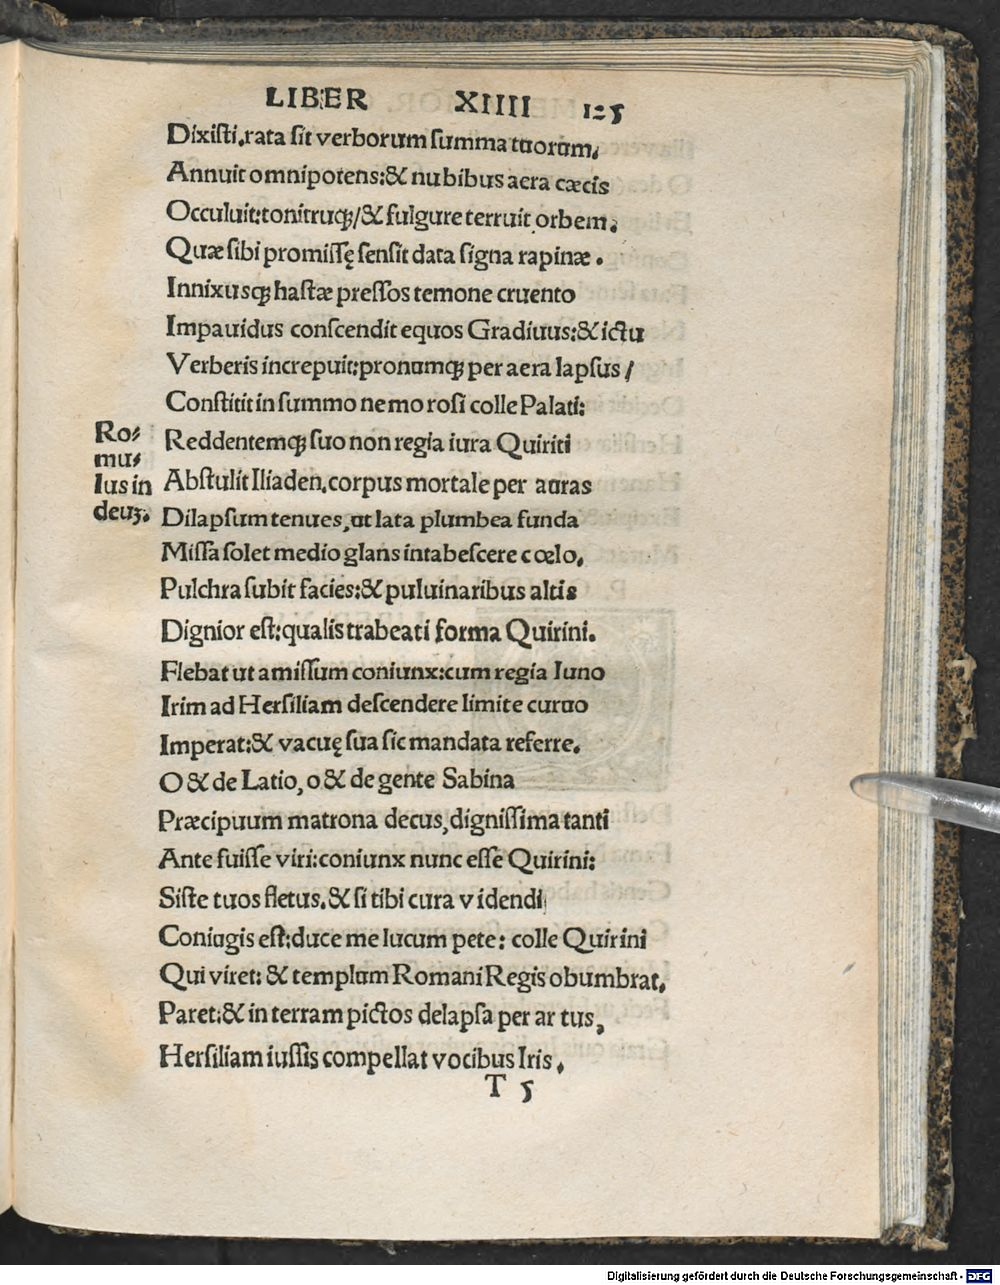 LIBER XIIII 125
Dixisti.rata sit verborum summa tuorum.
Annuit omnipotens:& nubibus aera cæcis
Occuluit:tonitruq;/& fulgure terruit orbem.
Quæ sibi promissę sensit data signa rapinæ.
Innixusq; hastæ pressos temone cruento
Impauidus conscendit equos Gradiuus:& ictu
Verberis increpuit:pronumq; per aera lapsus/
Constitit in summo nemorosi colle Palati:
Reddentemq; suo non regia iura Quiriti
Abstulit Iliaden.corpus mortale per auras
Dilapsum tenues,ut lata plumbea funda
Missa solet medio glans intabescere cœlo.
Pulchra subit facies:& puluinaribus altis
Dignior est:qualis trabeati forma Quirini.
Flebat ut amissum coniunx:cum regia Iuno
Irim ad Hersiliam descendere limite curuo
Imperat:& vacuę sua sic mandata referre.
O & de Latio, o & de gente Sabina
Præcipuum matrona decus,dignissima tanti
Ante fuisse viri:coniunx nunc esse Quirini:
Siste tuos fletus.& si tibi cura videndi
Coniugis est:duce me lucum pete: colle Quirini
Qui viret: & templum Romani Regis obumbrat.
Paret:& in terram pictos delapsa per ar tus,
Hersiliam iussis compellat vocibus Iris.
T 5
Ro⸗
mu⸗
lus in
deuʒ.
Digitalisierung gefördert durch die Deutsche Forschungsgemeinschaft - DFG